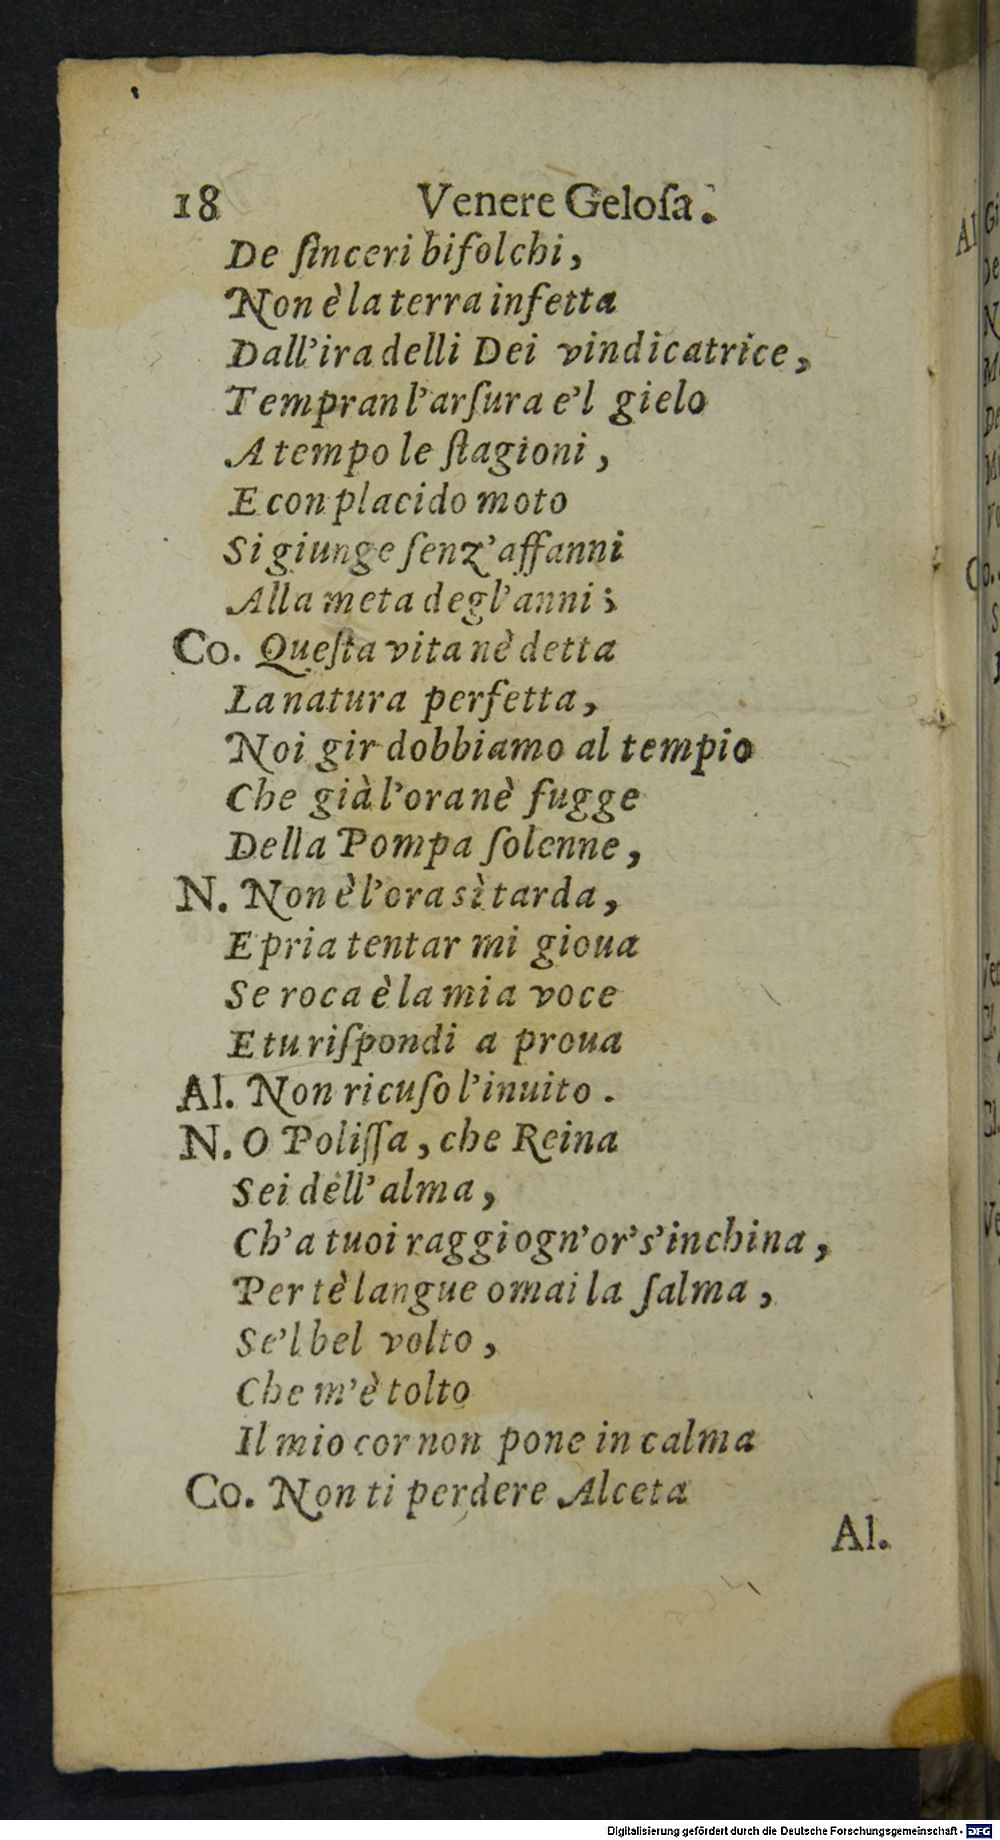 18 Venere Geloſa.
De ſinceri bifolchi,
Non è la terra infetta
Dall'ira delli Dei vindicatrice,
Tempran l'arſura e'l gielo
A tempo le ſtagioni,
E con placido moto
Si giunge ſenz'affanni
Alla meta degl'anni;
Co. Queſta vita nè detta
La natura perfetta,
Noi gir dobbiamo al tempio
Che già l'ora nè fugge
Della Pompa ſolenne,
N. Non è l'ora sì tarda,
E pria tentar mi gioua
Se roca è la mia voce
E tu riſpondi a proua
Al. Non ricuſo l'inuito.
N. O Poliſſa, che Reina
Sei dell'alma,
Ch'a tuoi raggi ogn'or's'inchina,
Per tè langue omai la ſalma,
Se'l bel volto,
Che m'è tolto
Il mio cor non pone in calma
Co. Non ti perdere Alceta
Al.
Digitalisierung gefördert durch die Deutsche Forschungsgemeinschaft - DFG